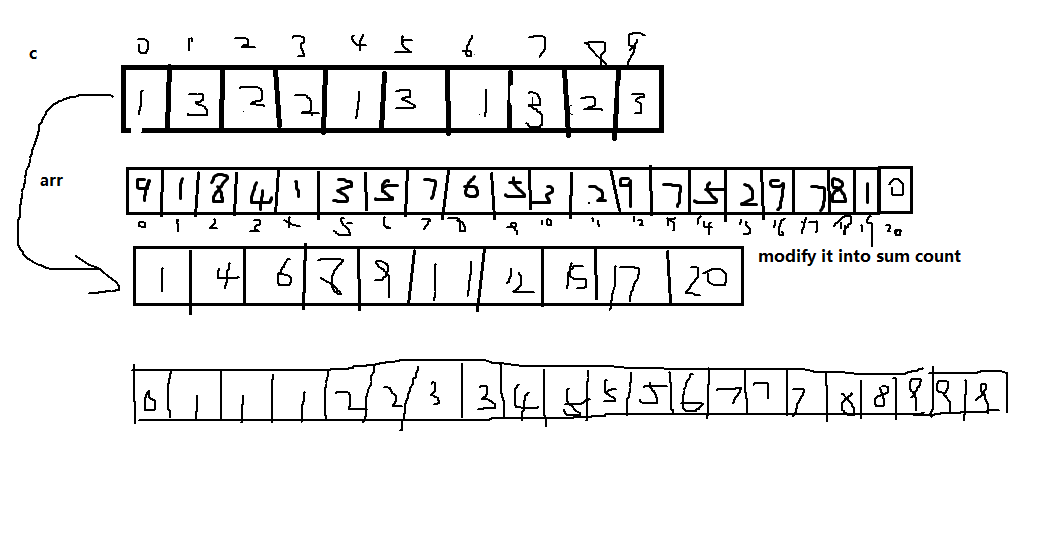 0 1 2 3 4 5 6 7 8 9
c
1 3 2 2 1 3 1 3 2 3
arr
9 1 8 4 1 3 5 7 6 5 3 2 9 7 5 2 9 7 8 1 0
0 1 2 3 4 5 6 7 8 9 10 11 12 13 14 15 16 17 18 19 20
modify it into sum count
1 4 6 8 9 11 12 15 17 20
0 1 1 1 2 2 3 3 4 5 5 5 6 7 7 7 8 8 9 9 9